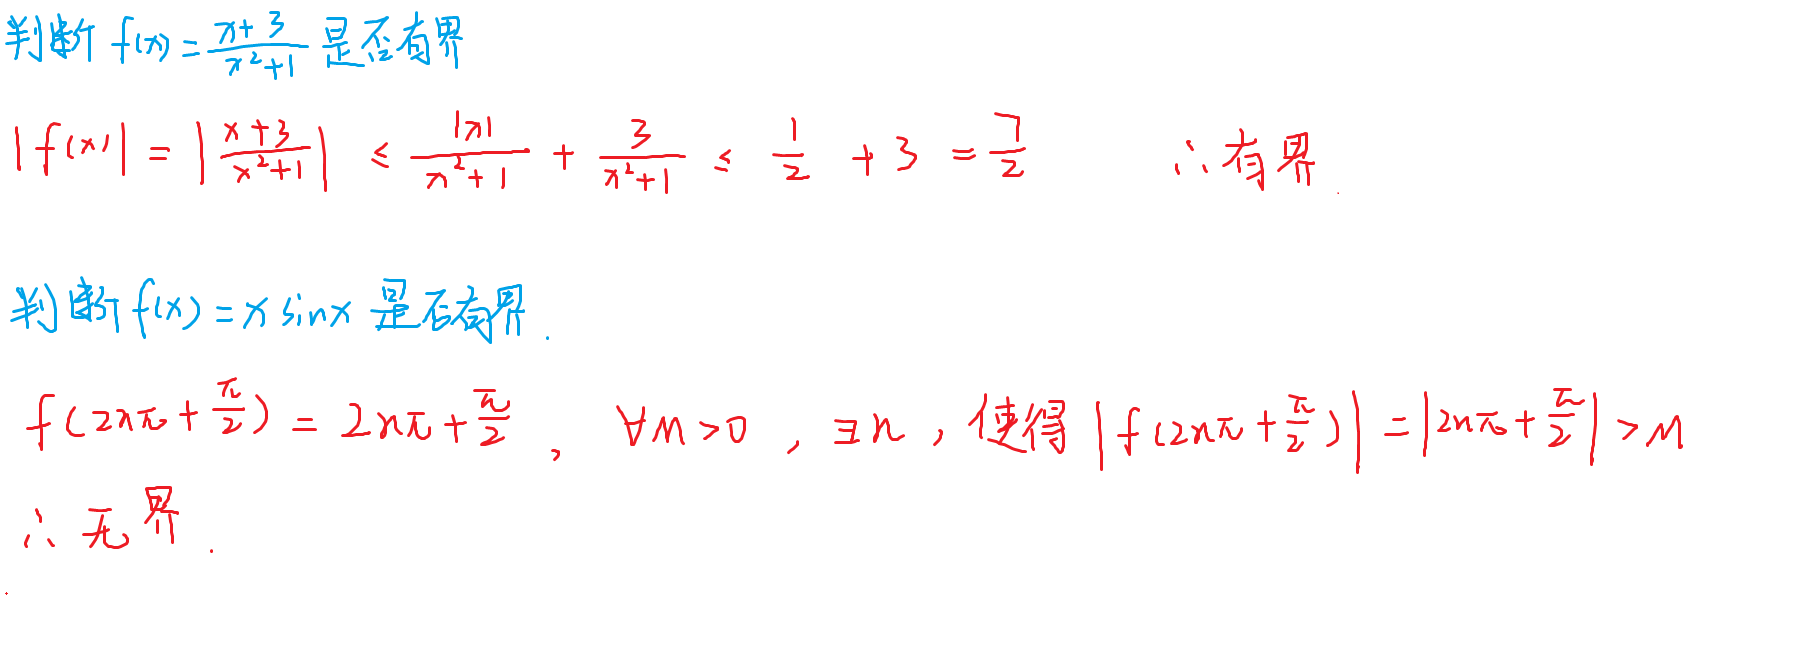 判断 f(x) = \frac{x+3}{x^2+1} 是否有界
|f(x)| = |\frac{x+3}{x^2+1}| ≤ \frac{|x|}{x^2+1} + \frac{3}{x^2+1} ≤ \frac{1}{2} + 3 = \frac{7}{2} ∴有界.
判断 f(x) = x sinx 是否有界.
f(2nπ + \frac{π}{2}) = 2nπ + \frac{π}{2}, ∀M>0, ∃n, 使得 |f(2nπ + \frac{π}{2})| = |2nπ + \frac{π}{2}| > M
∴ 无界.